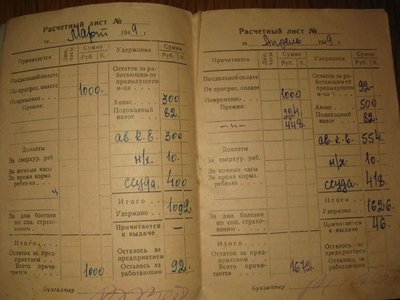 Расчетный лист №
за Март 1949 г.
Причитается
Дни, часы
Сумма
Руб. К.
Удержания
Сумма
Руб. К.
По сдельной оплате
По прогрес. оплате
Повременно
Премия:
1000.
Остаток за работающим от предыдущего м-ца
Аванс 300
Подоходный налог 82.
ав. к. в. 300
Доплаты
За сверхур. раб.
н/х. 10.
За ночные часы
За время кормл. ребенка
ссуда. 400
Итого 1092
За дни болезни по соц. страхованию
Удержано
Причитается к выдаче
Итого
Остаток за предприятием
Всего причитается 1000
Осталось за предприятием
Осталось за работающим 92.
Бухгалтер
Расчетный лист №
за Апрель 1949 г.
Причитается
Сумма
Руб. К.
Удержания
Сумма
Руб. К.
По сдельной оплате
По прогрес. оплате
Повременно 1000
Премия: 224.
-"- 448.
Остаток за работающим от предыдущего м-ца 92-
Аванс 500
Подоходный налог 82.
ав. к. в. 554.
Доплаты
За сверхур. раб.
н/х. 10.
За ночные часы
За время кормл. ребенка
ссуда. 418.
Итого 1626
За дни болезни по соц. страхованию
Удержано
Причитается к выдаче 46.
Итого
Остаток за предприятием
Всего причитается 1672.
Осталось за предприятием
Осталось за работающим
Бухгалтер